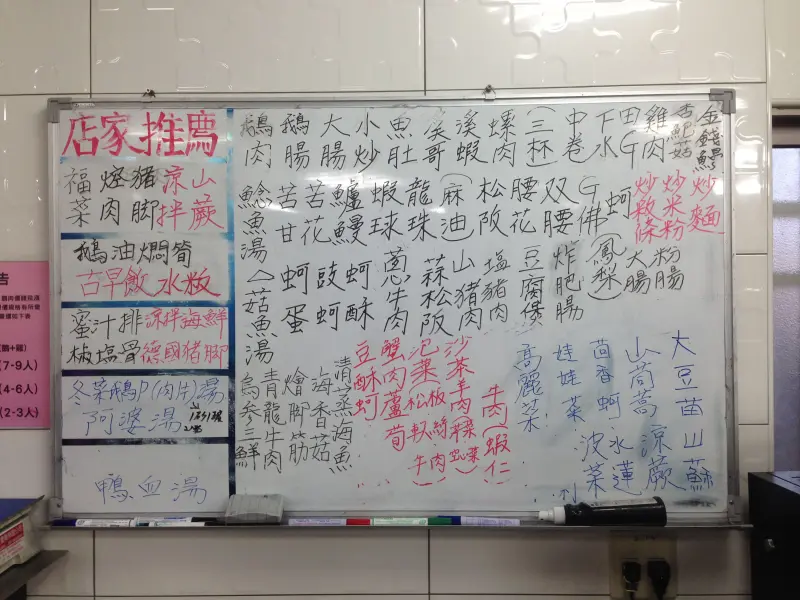 店家推薦
福菜 燈肉 豬脚 涼拌 山蕨
鵝油燜筍
古早飯 水粄
蜜汁排 涼拌海鮮
椒塩骨 德國豬脚
冬菜鴨P(肉片)湯
阿婆湯
鴨血湯
鵝肉
鵝腸
大腸
小炒
魚肚
溪蝦
螺肉
三杯
中卷
下水
田G
雞肉
杏鮑菇
金錢鱘
鯰魚湯
苦甘
苦花
鱸鰻
蝦球
龍珠
麻油
松阪
腰花
双腰
G佛
蚵
炒粄條
炒米粉
炒麵
菇魚湯
蚵蛋
豉蚵
蚵酥
蔥牛肉
蒜松阪
山豬肉
塩豬肉
豆腐煲
炸肥腸
(鳳梨)
大腸
粉腸
烏參三鮮
青龍牛肉
燴脚筋
海香菇
清蒸海魚
豆酥蚵
蟹肉蘆筍
泡菜 松板 牛肉
沙茶羊肉
牛肉(蝦仁)
高麗菜
娃娃菜
茴香蚵
山茼蒿
大豆苗
波菜
水蓮
涼蕨
山蘇
告
(7-9人)
(4-6人)
(2-3人)